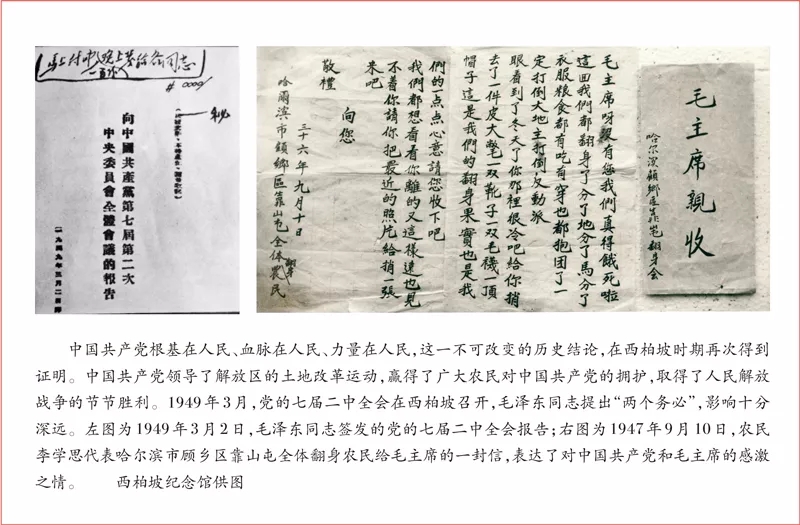 马上付印晚上发给各同志
一百份
#0009
向中國共產黨第七屆第二次
中央委員會全體會議的報告
一九四九年三月二日
毛主席親收
哈尔滨顾鄉區靠山屯翻身会
毛主席呀没有您我們真得餓死啦
這回我們都翻身了分了地分了馬分了
衣服粮食都有吃有穿也都抱团了一
定打倒大地主打倒反动派
眼看到了冬天了你那裡很冷吧給你捎
去了一件皮大氅一双靴子一双毛襪一頂
帽子這是我們的翻身果實也是我
們的一点点心意請您收下吧
我們都想看看你離的又這樣遠也見
不着你請你把最近的照片給捎一張
来吧
向您
敬禮
三十六年九月十日
哈爾滨市顧鄉區靠山屯全体翻身農民
中国共产党根基在人民、血脉在人民、力量在人民,这一不可改变的历史结论,在西柏坡时期再次得到
证明。中国共产党领导了解放区的土地改革运动,赢得了广大农民对中国共产党的拥护,取得了人民解放
战争的节节胜利。1949年3月,党的七届二中全会在西柏坡召开,毛泽东同志提出“两个务必”,影响十分
深远。左图为1949年3月2日,毛泽东同志签发的党的七届二中全会报告;右图为1947年9月10日,农民
李学思代表哈尔滨市顾乡区靠山屯全体翻身农民给毛主席的一封信,表达了对中国共产党和毛主席的感激
之情。 西柏坡纪念馆供图